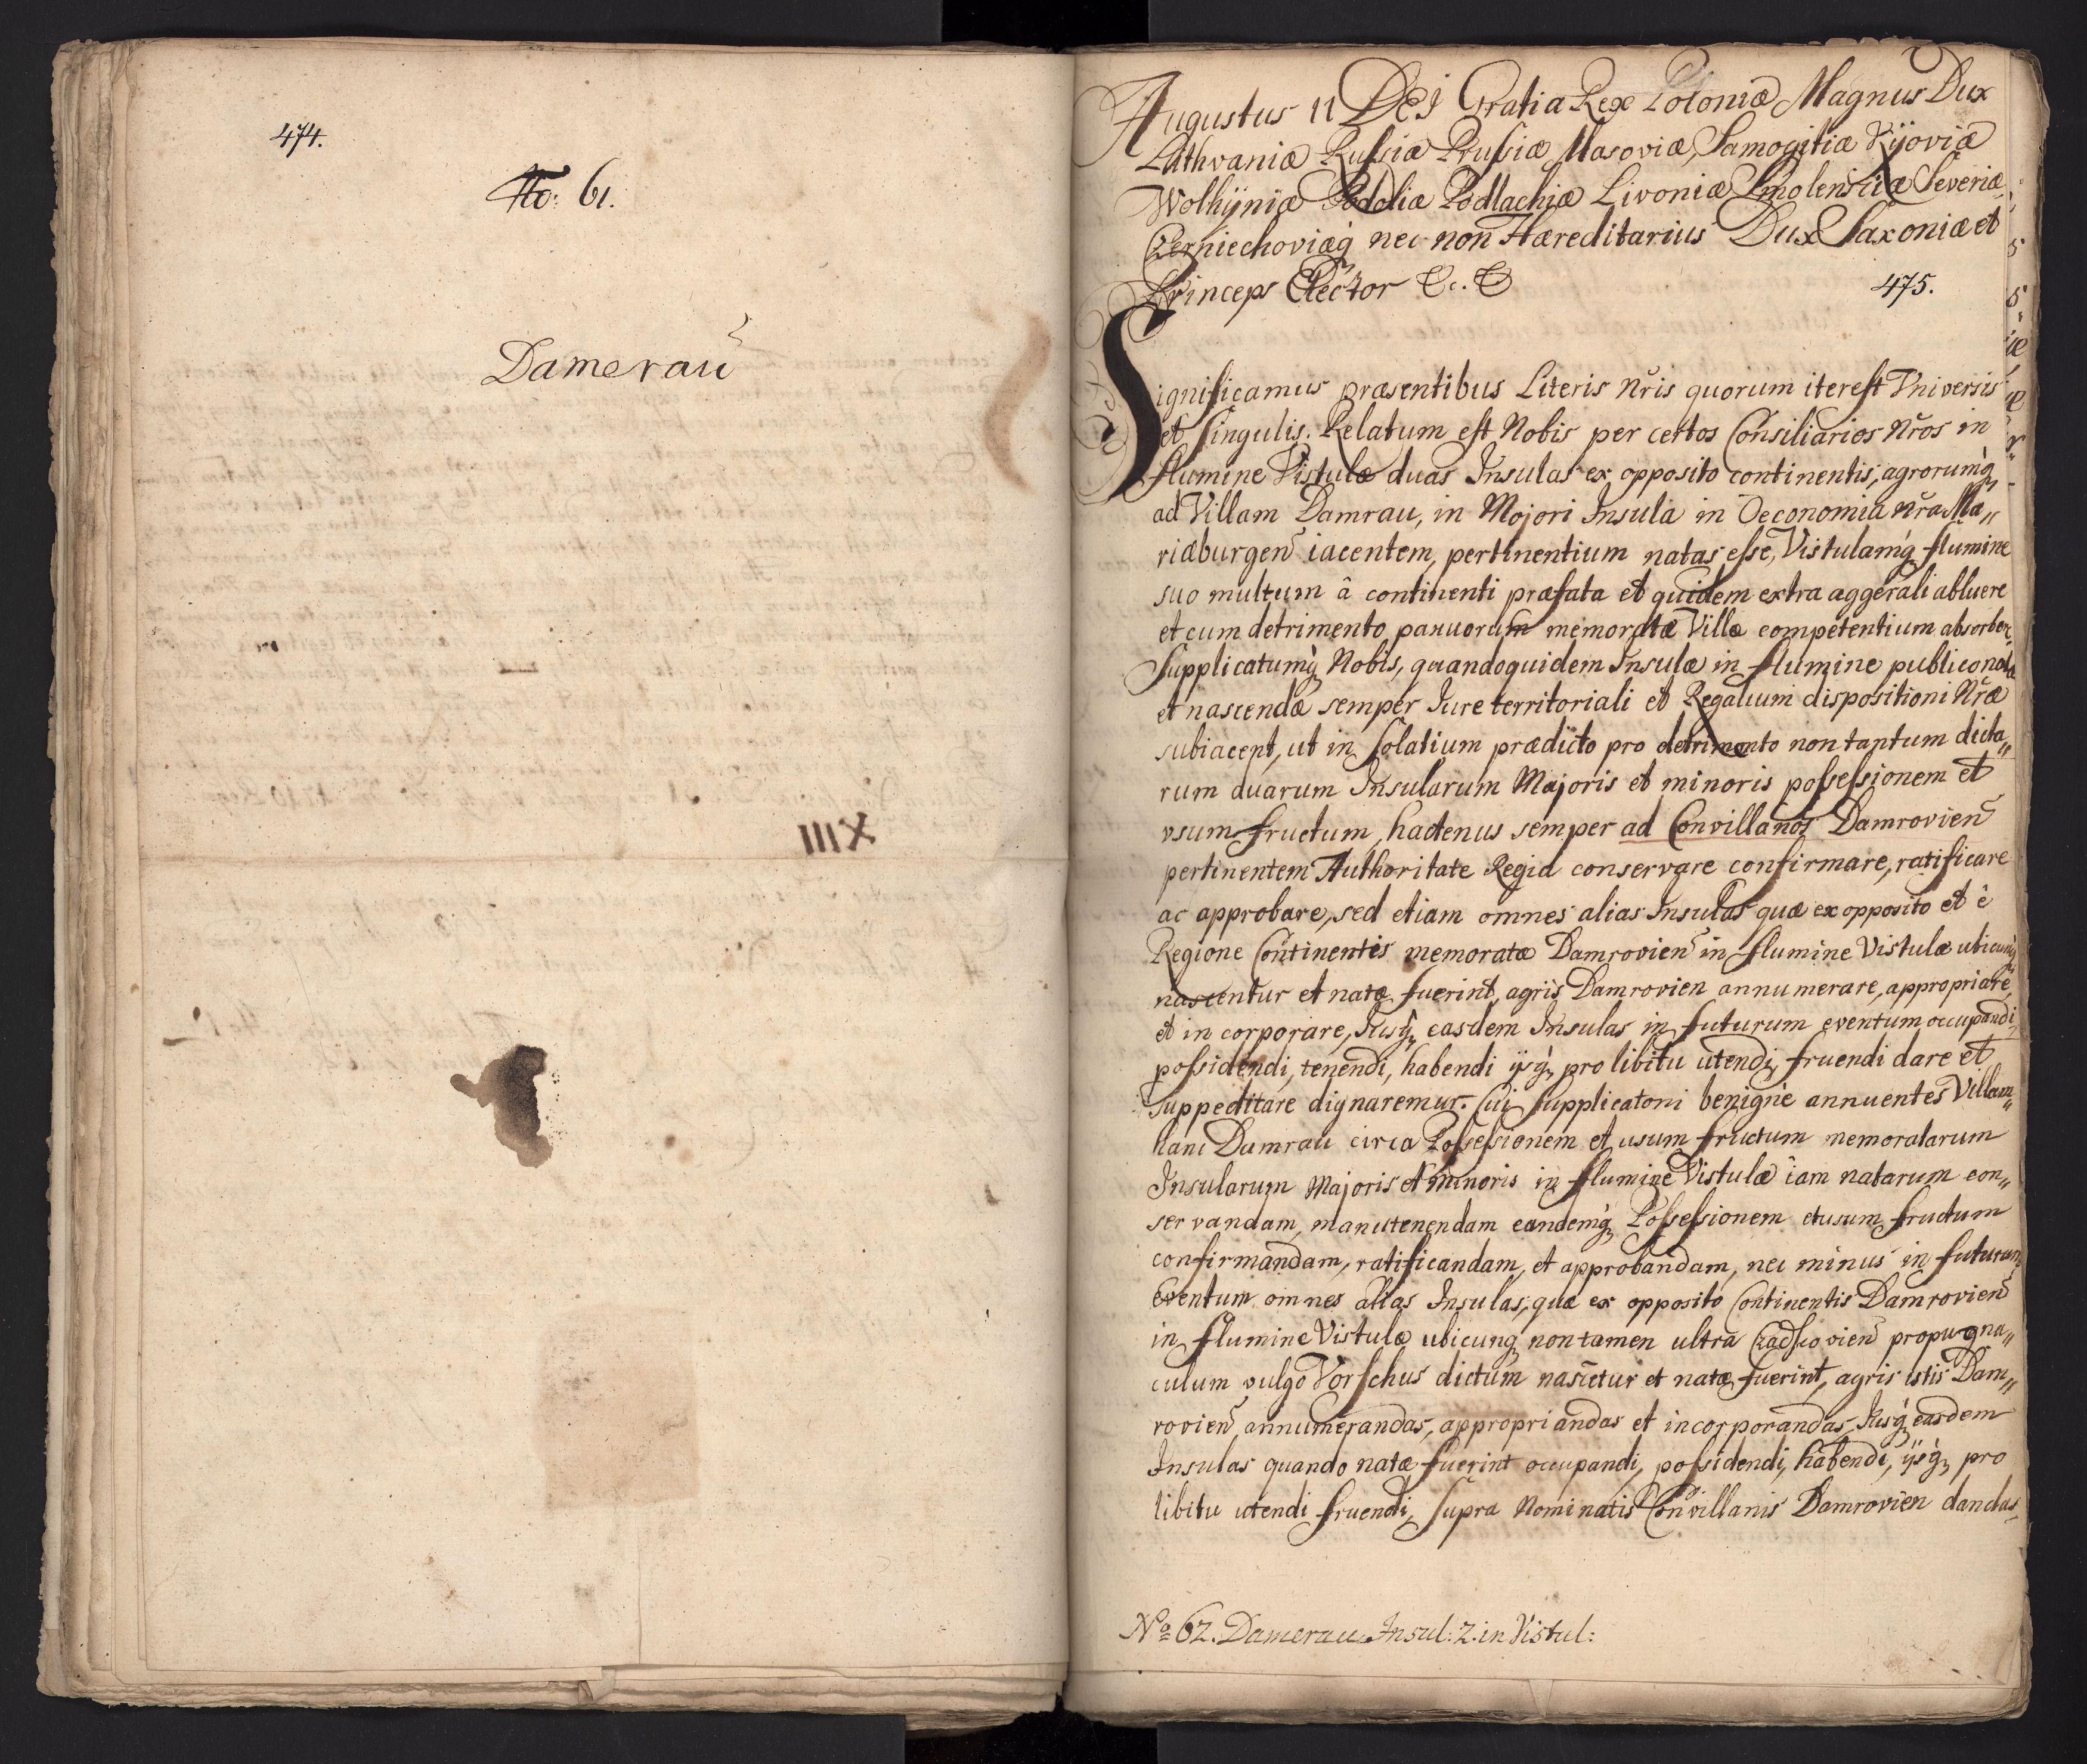 474.
No: 61.
Damerau
XIII
Augustus II DEI Gratia Rex Poloniæ Magnus Dux
Lithvaniæ Russiæ Prussiæ Masoviæ, Samogitiæ Kijoviæ
Wolhÿniæ Podoliæ Podlachiæ Livoniæ Smolensciæ Severiæ
Czerniechoviæq nec non Hæreditarius Dux Saxoniæ et
Princeps Elector &c. &
475.
Significamus præsentibus Literis Nr̃is quorum interest Vniversis
et Singulis. Relatum est Nobis per certos Consiliarios Nr̃os in
flumine Vistulæ duas Insulas ex opposito continentis, agrorumq
ad Villam Damrau, in Majori Insula in Oeconomia nr̃a Ma„
riæburgen iacentem, pertinentium natas esse, Vistulamq flumine
suo multum â continenti præfata et quidem extra aggerali abluere
et cum detrimento pascuorum memoratæ Villæ competentium absorbere
Supplicatumq Nobis, quandoquidem Insulæ in flumine publico natæ
et nascendæ semper Iure territoriali et Regalium dispositioni Nr̃æ
subiacent, ut in Solatium prædicto pro detrimento non tantum dicta„
rum duarum Insularum Majoris et minoris possessionem et
vsum fructum, hactenus semper ad Convillanos Damrovien
pertinentem Authoritate Regia conservare confirmare, ratificare
ac approbare, sed etiam omnes alias Insulas quæ ex opposito et è
Regione Continentis memoratæ Damrovien in flumine Vistulæ ubicunq
nascentur et natæ fuerint, agris Damrovien annumerare, appropriare,
et in corporare, Iusq easdem Insulas in futurum eventum occupandi,
possidendi, tenendi, habendi ijsq pro libitu utendi, fruendi dare et
suppeditare dignaremur. Cui supplicatoni benignè annuentes Villam„
hanc Damrau circa Possessionem et usum fructum memoratarum
Insularum Majoris et minoris in flumine Vistulæ iam natarum con„
servandam, manutenendam eandemq Possessionem et usum fructum
confirmandam, ratificandam, et approbandam, nec minus in futurum
eventum omnes alias Insulas, quæ ex opposito Continentis Damrovien
in flumine Vistulæ ubicunq non tamen ultra propugna„
culum vulgo Vorschus dictum nascetur et natæ fuerint, agris istis Dam„
rovien annumerandas, appropriandas et incorporandas, Iusq easdem
Insulas quando natæ fuerint occupandi, possidendi, habendi, ijsq pro
libitu utendi fruendi, supra Nominatis Convillanis Damrovien dandas
No 62. Damerau Insul: 2. in Vistul: